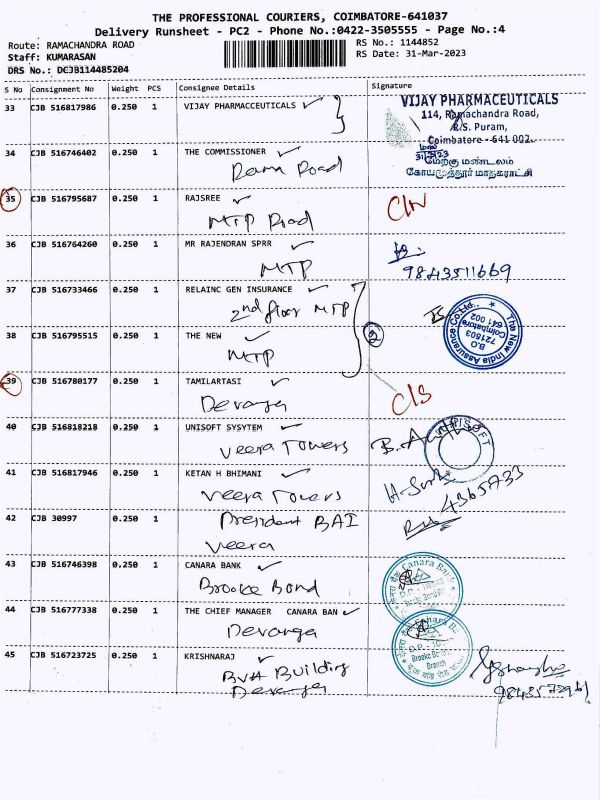 THE PROFESSIONAL COURIERS, COIMBATORE-641037
Delivery Runsheet - PC2 - Phone No.:0422-3505555 - Page No.:4
Route: RAMACHANDRA ROAD RS No.: 1144852
Staff: KUMARASAN RS Date: 31-Mar-2023
DRS No.: DCJB114485204
S No Consignment No Weight PCS Consignee Details Signature
33 CJB 516817986 0.250 1 VIJAY PHARMACCEUTICALS
VIJAY PHARMACEUTICALS
114, Ramachandra Road,
R.S. Puram,
Coimbatore - 641 002.
34 CJB 516746402 0.250 1 THE COMMISSIONER
Rama Road
மேற்கு மண்டலம்
கோயமுத்தூர் மாநகராட்சி
35 CJB 516795687 0.250 1 RAJSREE
MTP Road
36 CJB 516764260 0.250 1 MR RAJENDRAN SPRR
MTP
9843511669
37 CJB 516733466 0.250 1 RELAINC GEN INSURANCE
2nd floor MTP
38 CJB 516795515 0.250 1 THE NEW
MTP
2
The New India Assurance Co. Ltd.,
B.O
721503
Coimbatore
641 002
39 CJB 516780177 0.250 1 TAMILARTASI
Devanga
C/S
40 CJB 516818218 0.250 1 UNISOFT SYSYTEM
Veera Towers
UNISOFT
41 CJB 516817946 0.250 1 KETAN H BHIMANI
Veera Towers
42 CJB 30997 0.250 1 President BAI
Veera
43 CJB 516746398 0.250 1 CANARA BANK
Brooke Bond
Canara Bank
44 CJB 516777338 0.250 1 THE CHIEF MANAGER CANARA BAN
Devanga
Canara B
Branch
45 CJB 516723725 0.250 1 KRISHNARAJ
BVH Building
Devanga